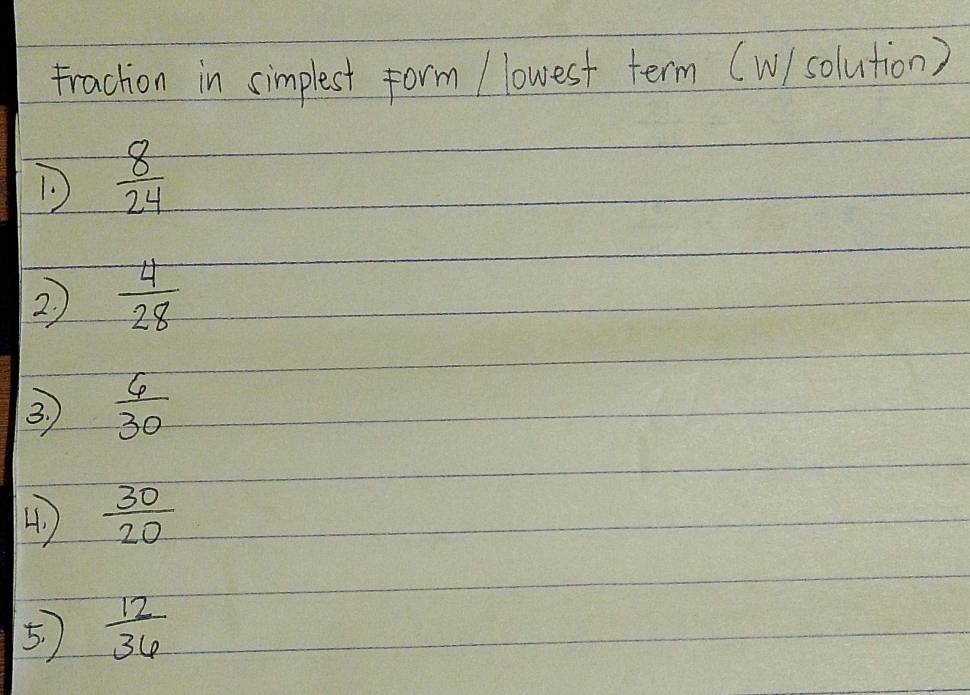 Fraction in simplest form / lowest term (w/ solution)
1.) 8/24
2.) 4/28
3.) 6/30
4.) 30/20
5.) 12/36